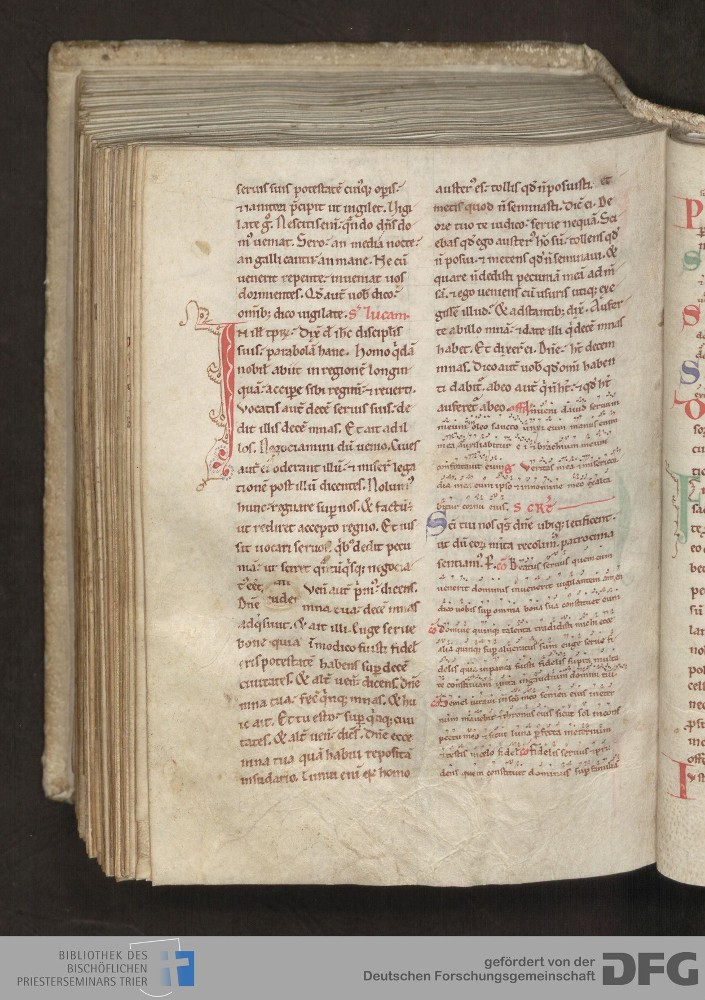 seruis suis potestatē cuiusq; opis.
⁊ ianitori p̄cipit ut uigilet. Vigi
late g̊. Nescitis eni qn̄do dn̄s do
m̄ ueniat. Sero. an media nocte.
an galli cantu. an mane. Ne cū
uenerit repente. inueniat uos
dormientes. Qđ aut̄ uob̄ dico.
omnib; dico uigilate. S. lucam.
In ill tpr̄. Dix̄ d̄ ihc discipl̄is
suis. parabolā hanc. Homo q̇dā
nobil' abiit in regionē longin
quā. accipe sibi regnū. ⁊ reuerti.
Vocatis aut̄ decē seruis suis. de
dit illis decē mnas. Et ait ad il
los. Negociamini dū uenio. Ciues
aut̄ ei oderant illū. ⁊ miser̄ lega
tionē post illū dicentes. Nolum'
hunc regnare sup nos. Et factū.
ut rediret accepto regno. Et ius
sit uocari seruos. q̇b' dedit pecu
niā. ut sciret q̄ntū q̇sq; negocia
Ven̄ aut̄ p̄m'. dicens.
Dn̄e mna tua. decē mnas
adq̇siuit. Et ait illi. Euge serue
bone. quia ī modico fuisti fidel'
eris potestatē habens sup decē
ciuitates. Et alt̄ uen̄. dicens. Dn̄e
mna tua. fec̄ q̇nq; mnas. Et hu
ic ait. Et tu esto. sup q̇nq; ciui
tates. Et alt̄ uen̄. dic̄s. Dn̄e ecce
mna tua quā habui repositā
in sudario. Timui eni q̄ homo
auster' es. tollis qđ n̄ posuisti. et
metis quod n̄ seminasti. Dic̄ ei. De
ore tuo te iudico. serue nequā. Sci
ebas qđ ego auster' hō sū. tollens qđ
n̄ posui. ⁊ metens qđ n̄ seminaui. Et
quare n̄ dedisti pecuniā meā ad m̄
sā. ⁊ ego ueniens cū usuris utiq; exe
gissē illud. Et adstantib; dix̄. Aufer
te ab illo mnā. ⁊ date illi q̇ decē mnas
habet. Et dixer̄ ei. Dn̄e. ht̄ decem
mnas. Dico aut̄ uob̄ qđ omī haben
ti dabit̄. ab eo aut̄ q̇ n̄ ht̄. ⁊ qđ ht̄
auferet̄ ab eo. off. Inueni dauid seruum
meum oleo sancto unxi eum manus enim
mea auxiliabitur ei ⁊ brachium meum
confortauit eum. Veritas mea ⁊ misericor
dia mea cum ipso ⁊ in nomine meo exalta
bitur cornu eius. S CRĒ
Sc̄i tui nos qs̄ dn̄e ubiq; letificent.
ut dū eoꝝ m̄ita recolim'. patrocinia
sentiam'. P. Co Beatus seruus quem cum
uenerit dominus inuenerit uigilantem amen
dico uobis sup omnia bona sua constituet eum
Co Domine quinq; talenta tradidisti michi ecce
alia quinq; sup lucratus sum euge serue fi
delis quia in pauca fuisti fidelis supra multa
te constituam intra in gaudium domini tui.
Co Semel iuraui in sc̄o meo semen eius in eter
num manebit ⁊ thronus eius sicut sol in cons
pectu meo ⁊ sicut luna p̄fecta in eternum
⁊ testis in celo fidel' Co Fidelis seruus ⁊ pru
dens quem constituit dominus sup familiā
BIBLIOTHEK DES
BISCHÖFLICHEN
PRIESTERSEMINARS TRIER
gefördert von der
Deutschen Forschungsgemeinschaft
DFG